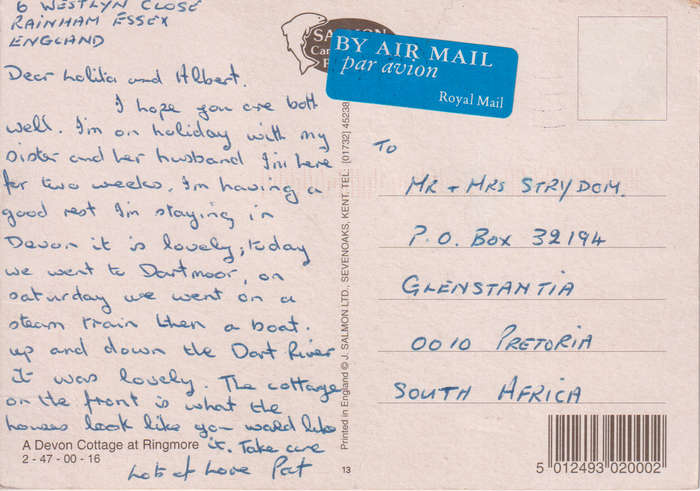 6 WESTLYN CLOSE
RAINHAM ESSEX
ENGLAND
Dear Lolita and Albert.
I hope you are both
well. I'm on holiday with my
sister and her husband I'm here
for two weeks. I'm having a
good rest I'm staying in
Devon it is lovely; today
we went to Dartmoor, on
saturday we went on a
steam train then a boat.
up and down the Dart River
it was lovely. The cottage
on the front is what the
houses look like you would like
it. Take care
Lots of Love Pat
A Devon Cottage at Ringmore
2 - 47 - 00 - 16
Printed in England © J. SALMON LTD., SEVENOAKS, KENT. TEL. (01732) 45238
13
SALMON
BY AIR MAIL
par avion
Royal Mail
TO
MR + MRS STRYDOM.
P.O. BOX 32194
GLENSTANTIA
0010 PRETORIA
SOUTH AFRICA
5 012493 020002